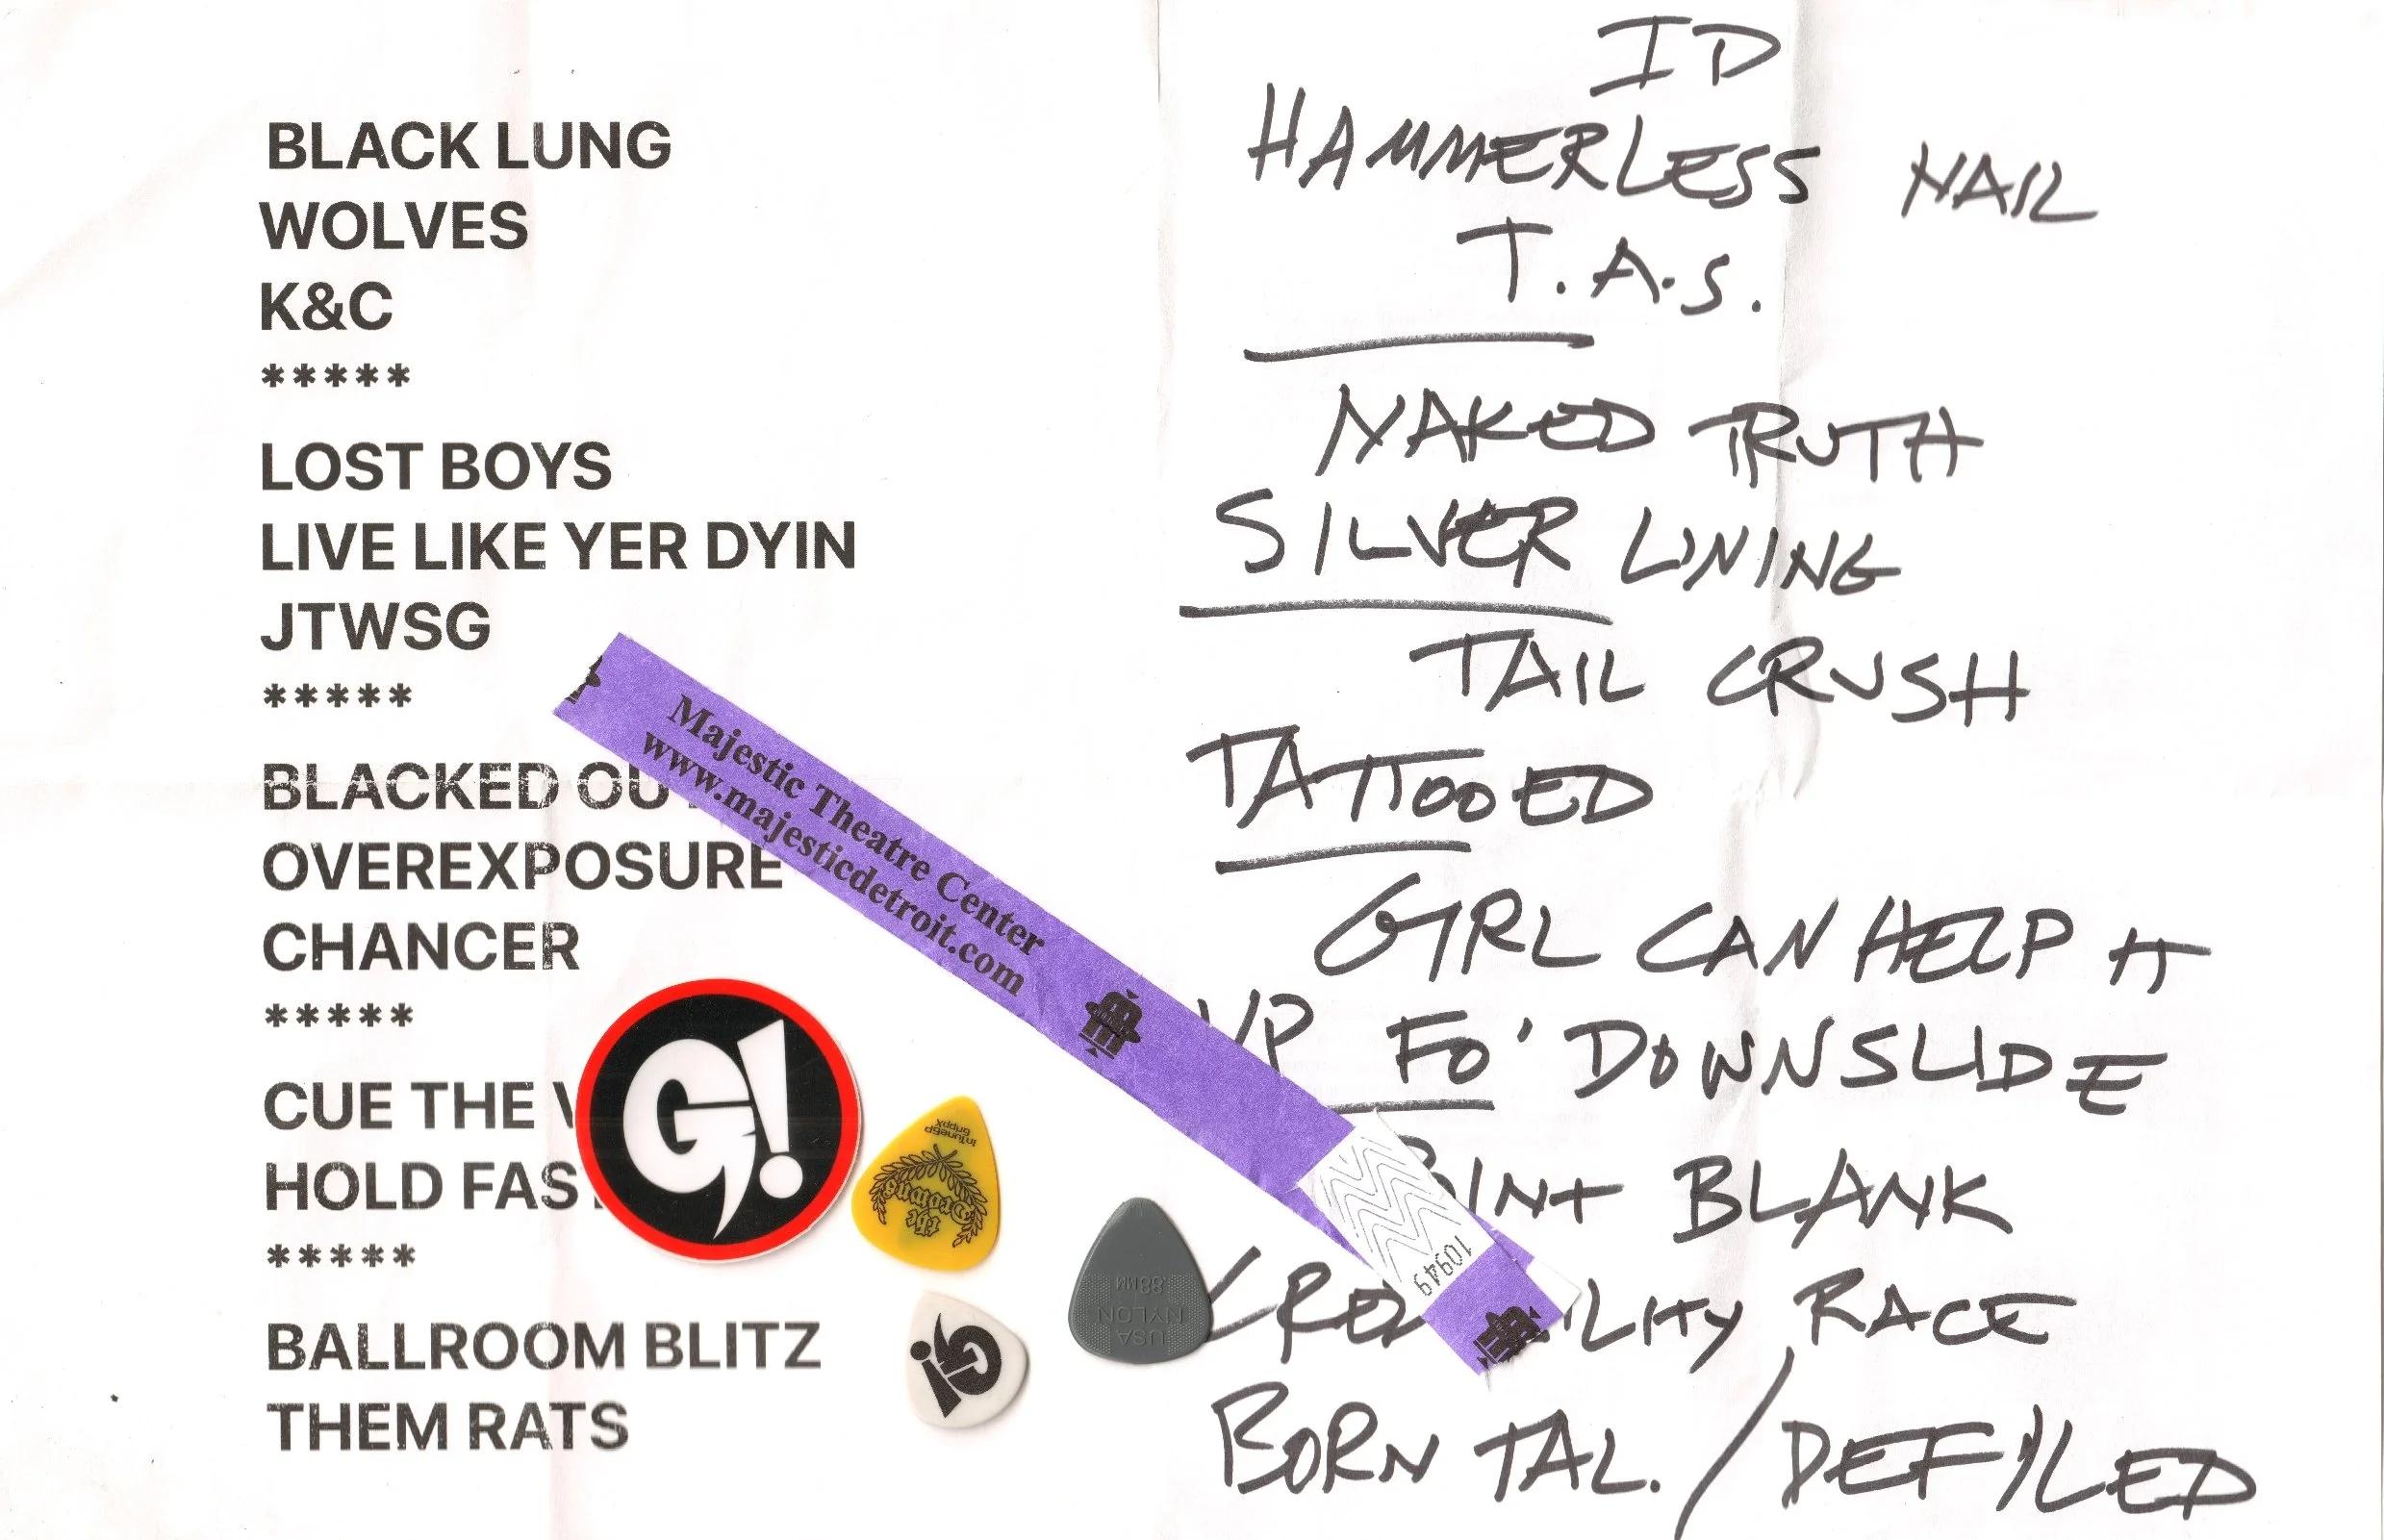 BLACK LUNG
WOLVES
K&C
*****
LOST BOYS
LIVE LIKE YER DYIN
JTWSG
*****
BLACKED OU
OVEREXPOSURE
CHANCER
*****
CUE THE
HOLD FAS
*****
BALLROOM BLITZ
THEM RATS
Majestic Theatre Center
www.majesticdetroit.com
10949
G!
the Drowns
G!
USA
NYLON
.88MM
ID
HAMMERLESS NAIL
T.A.S.
NAKED TRUTH
SILVER LINING
TAIL CRUSH
TATTOOED
GIRL CAN HELP IT
UP FO' DOWNSLIDE
INT BLANK
ILITY RACE
BORN TAL. / DEFILED